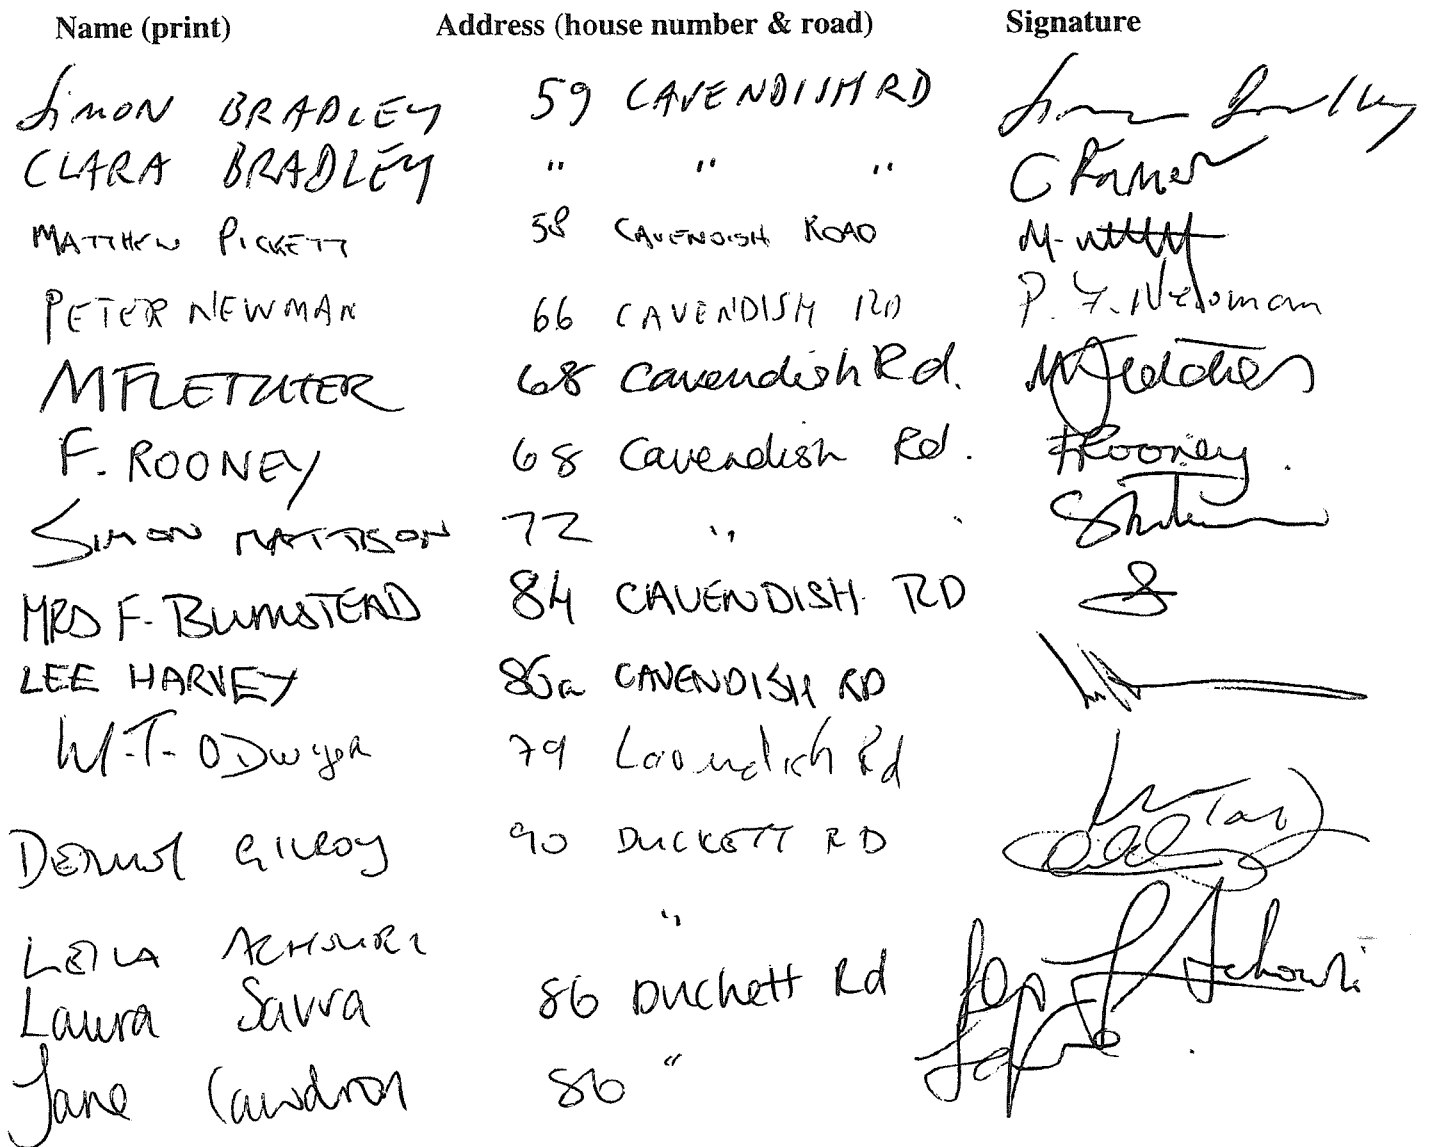 Name (print) Address (house number & road) Signature
SIMON BRADLEY 59 CAVENDISH RD
CLARA BRADLEY " " "
MATTHEW PICKETT 58 CAVENDISH ROAD
PETER NEWMAN 66 CAVENDISH RD P. F. Newman
M FLETCHER 68 Cavendish Rd. M Fletcher
F. ROONEY 68 Cavendish Rd. F Rooney.
SIMON MATTISON 72 "
MRS F. BUMSTEAD 84 CAVENDISH RD
LEE HARVEY 86a CAVENDISH RD
W.T. O Dwyer 79 Cavendish Rd
DERMOT GILROY 90 DUCKETT RD
LEILA ACHOURI " L Achouri
Laura Savva 86 Duckett Rd
Jane Cawdron 86 "